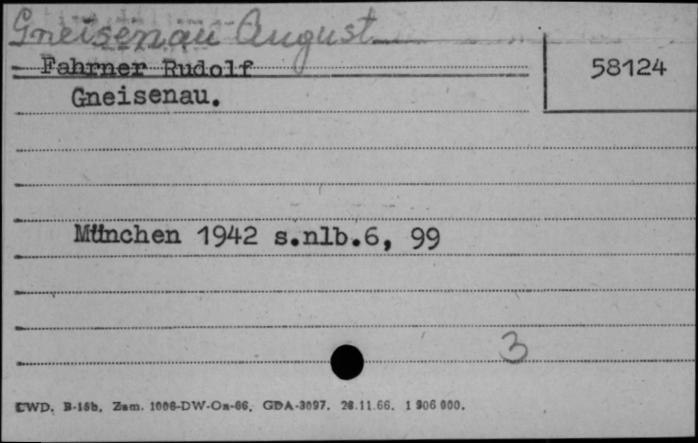 Gneisenau August
Fahrner Rudolf
58124
Gneisenau.
München 1942 s.nlb.6, 99
3
CWD. B-15b. Zam. 1006-DW-Oa-66. GDA-3097. 28.11.66. 1 906 000.